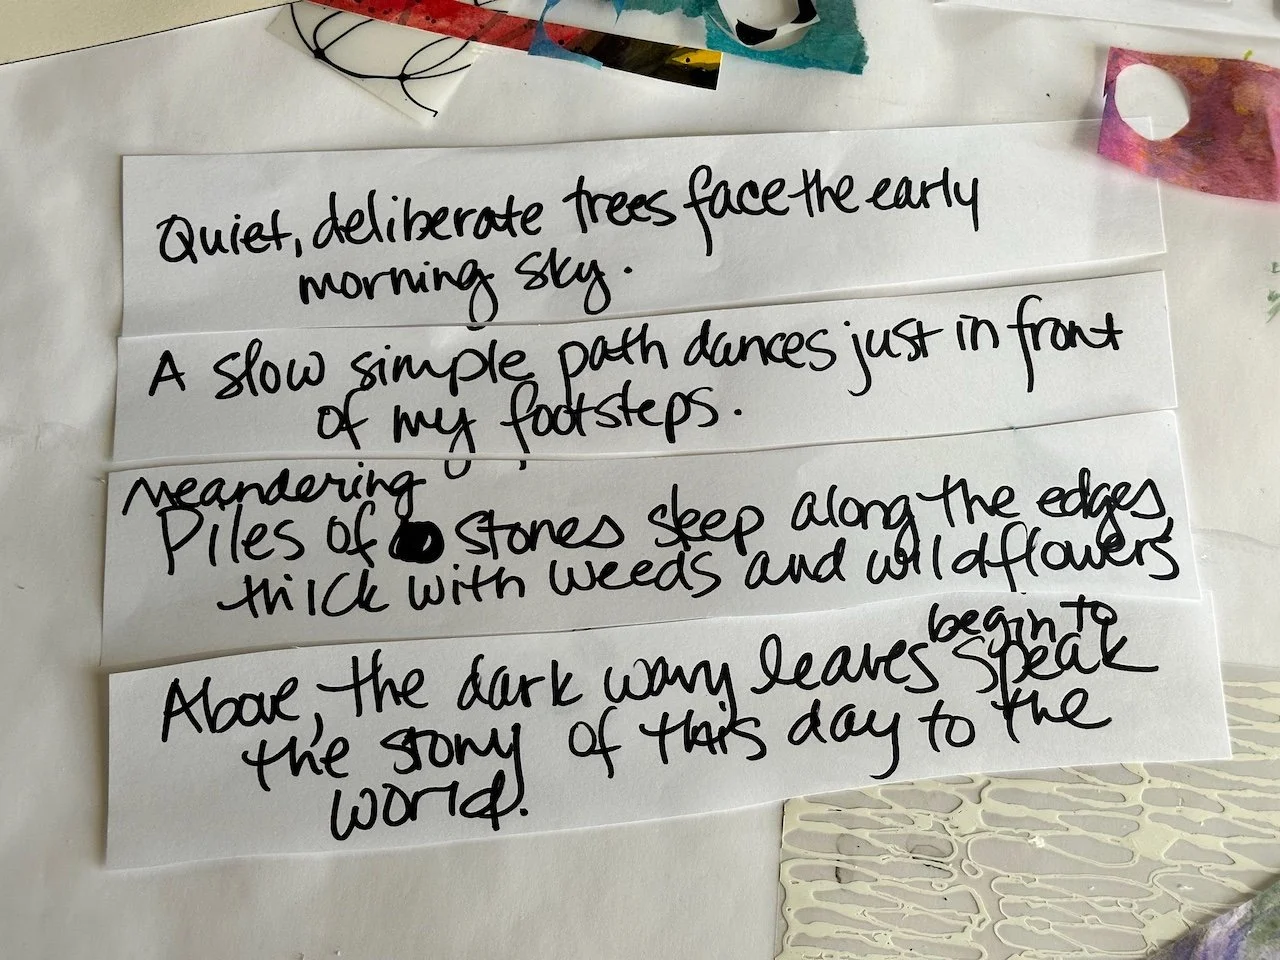 Quiet, deliberate trees face the early
morning sky.
A slow simple path dances just in front
of my footsteps.
Meandering
Piles of stones sleep along the edges,
thick with weeds and wildflowers
begin to
Above, the dark wavy leaves speak
the story of this day to the
world.